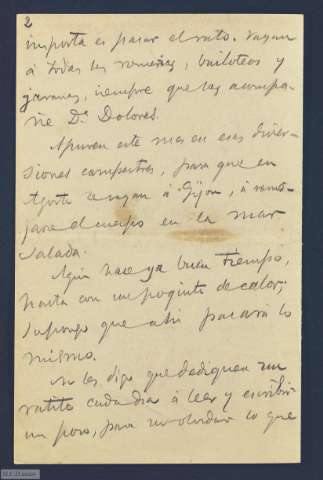 2
importa es pasar el rato. Vayan
á todas las romerías, bailoteos y
jaranas, siempre que las acompa-
ñe D.ª Dolores.
Apuren este mes en esas diver-
siones campestres, para que en
Agosto se vayan á Gijon, á remo-
jarse el cuerpo en la mar
salada.
Aquí hace ya buen tiempo,
hasta con un poquito de calor;
supongo que ahí pasará lo
mismo.
No les digo que dediquen un
ratito cada dia á leer y escribir
un poco, para no olvidar lo que